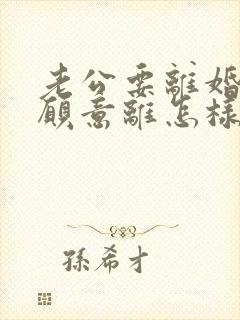 老公要離婚
願意離怎樣
孫希才